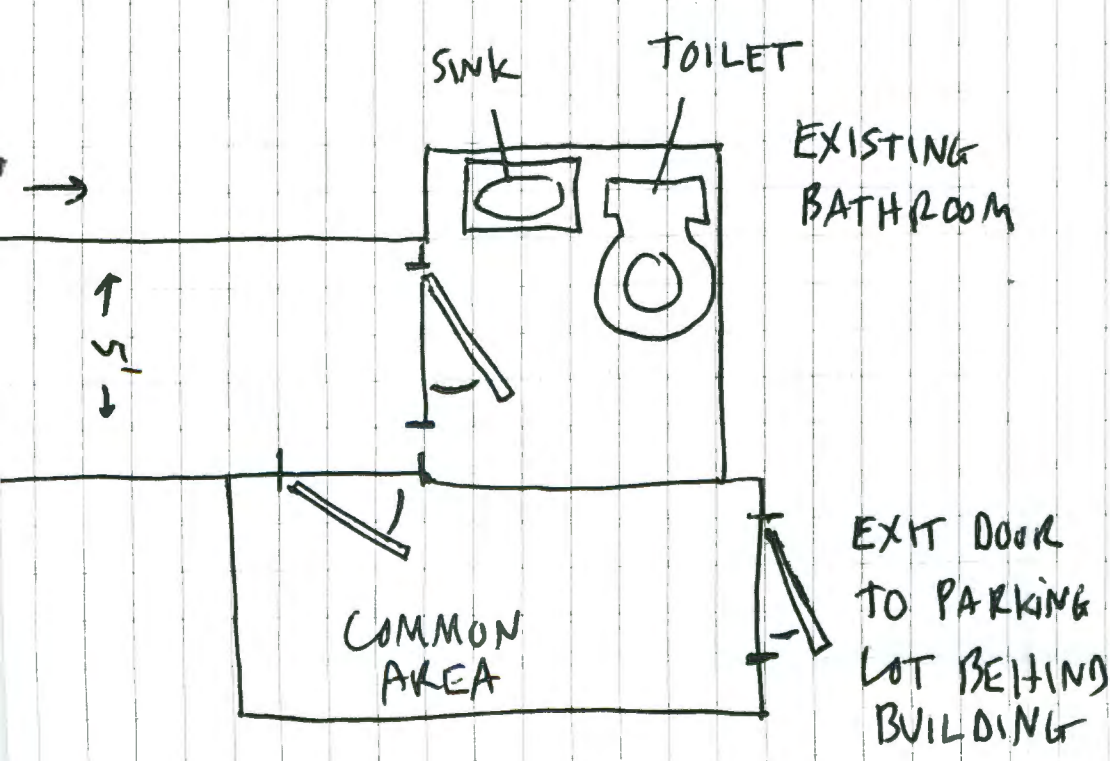 SINK
TOILET
EXISTING
BATHROOM
5'
COMMON
AREA
EXIT DOOR
TO PARKING
LOT BEHIND
BUILDING